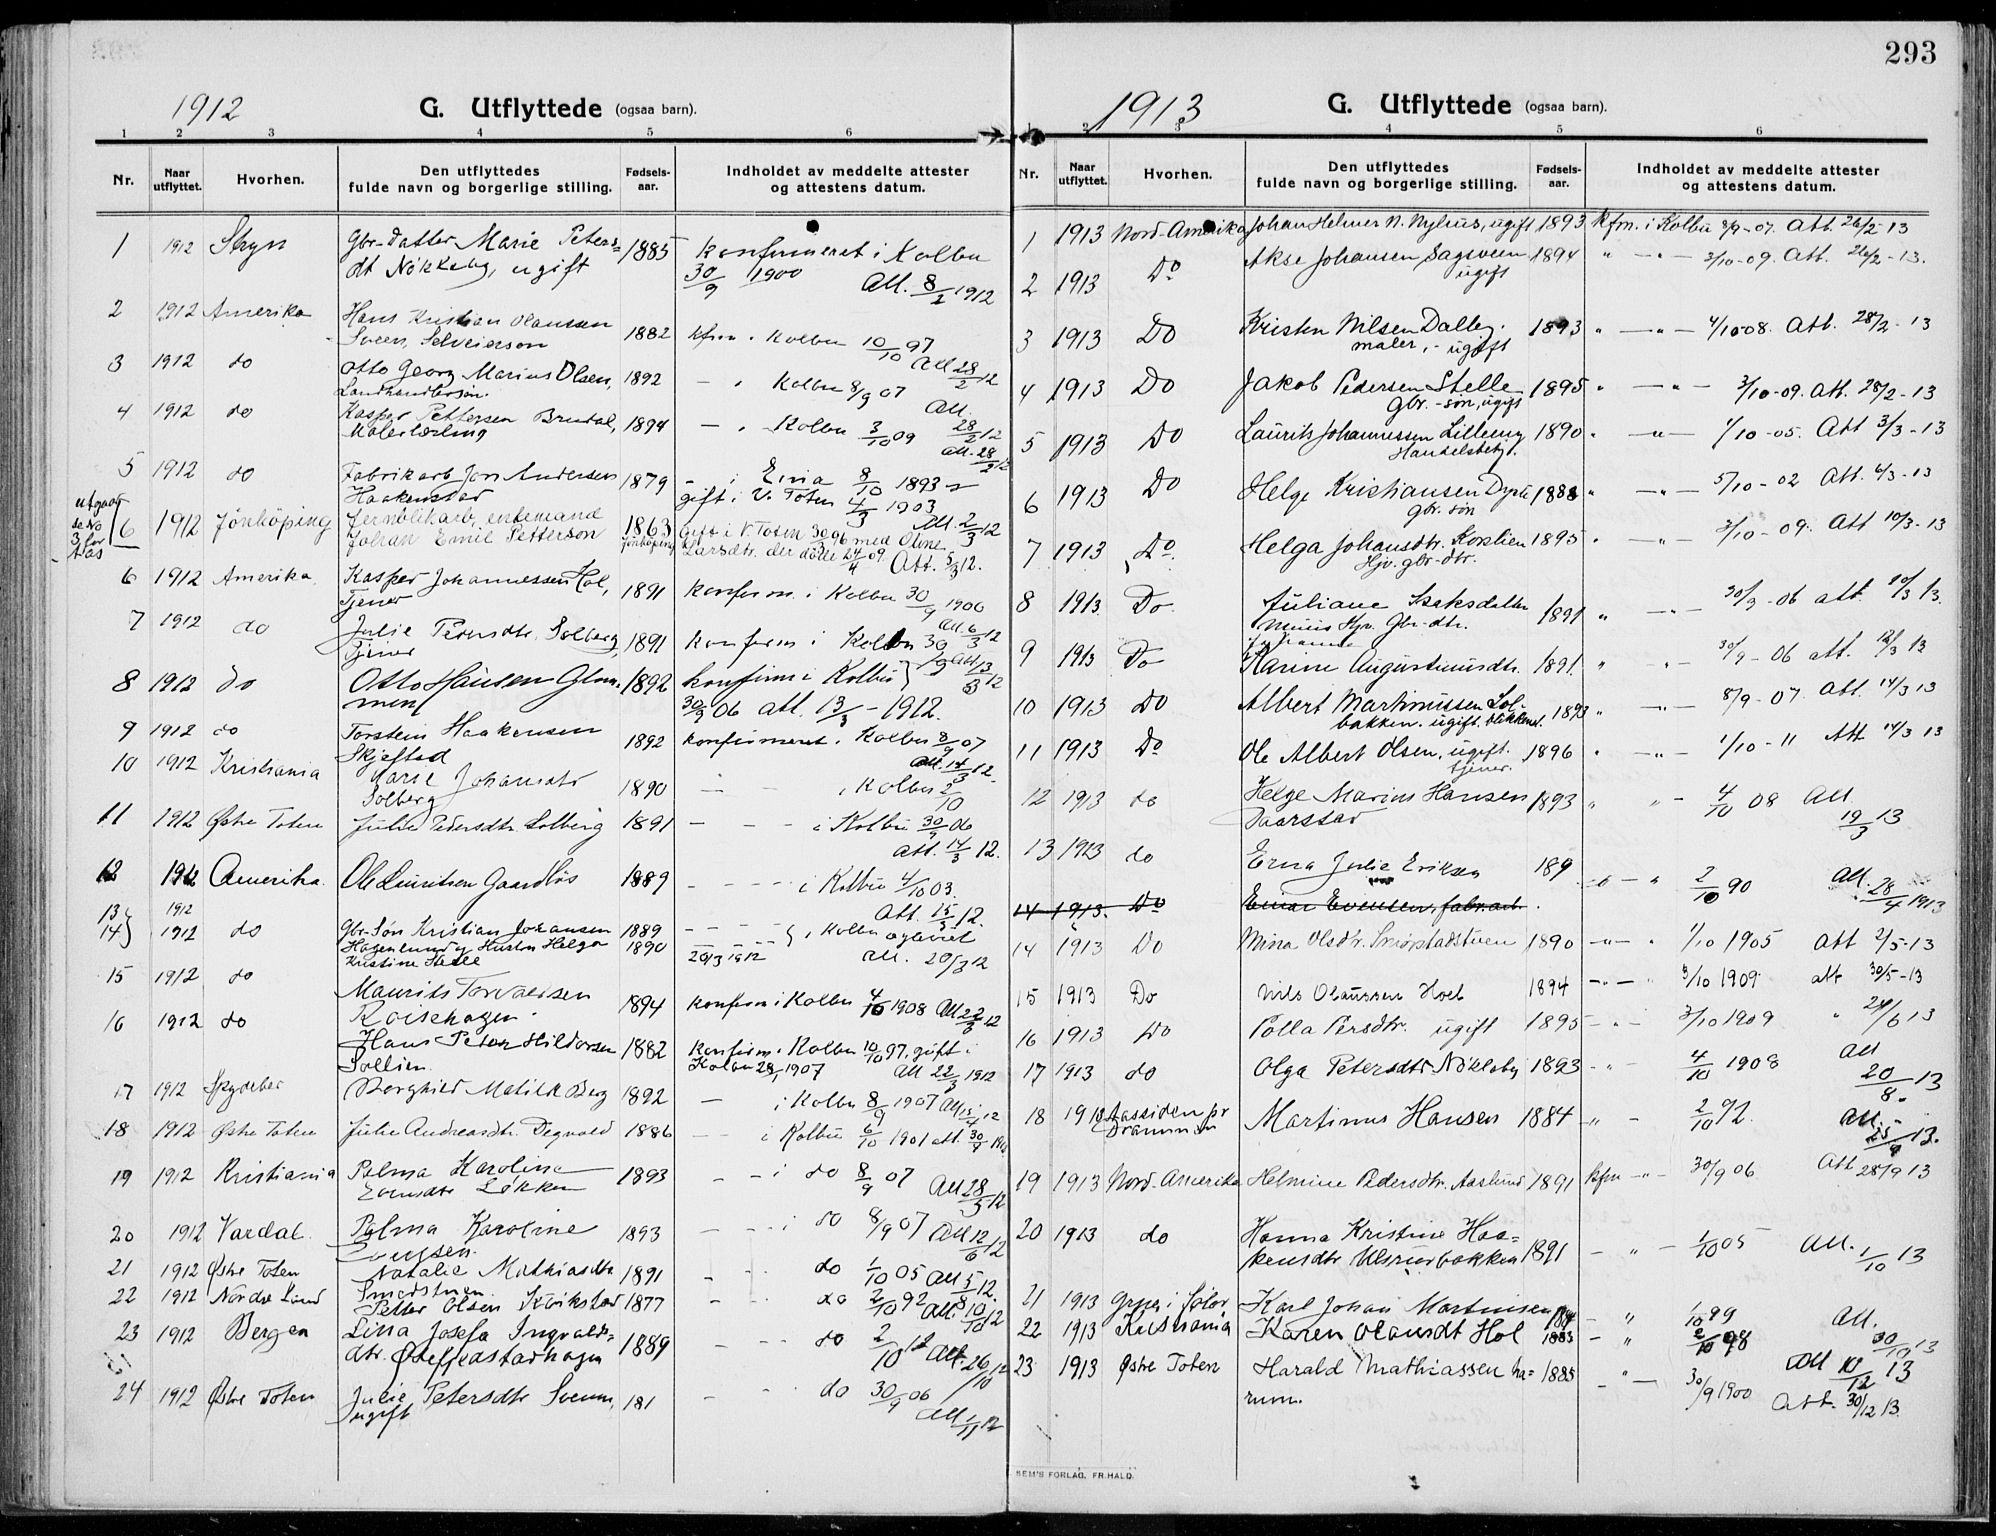 293
1912
G. Utflyttede (ogsaa barn).
1 2 3 4 5 6
Nr. Naar utflyttet. Hvorhen. Den utflyttedes fulde navn og borgerlige stilling. Fødsels-aar. Indholdet av meddelte attester og attestens datum.
1 1912 Stryn Gbr-datter Marie Peters= 1885 konfirmeret i Kolbu
dt Nökkeby, ugift 30/9 1900 Att. 8/2 1912
2 1912 Amerika Hans Kristian Olaussen
Sveen, Selveierson 1882 kfm. i Kolbu 10/10 97
Att 28/2 12
3 1912 do Otto Georg Marius Olsen, 1892 — " Kolbu 8/9 07
Landhandlersøn. Att. 28/2 12
4 1912 do Kasper Pettersen Brudal, 1894 — " Kolbu 3/10 09
Malerlærling Att. 28/2 12
5 1912 do Fabrikarb. Jon Andersen 1879 — i Eina 8/10 1893
Haakenstad gift i V. Toten 4/3 1903
Att. 2/3 12
6 1912 Jönköping enkemand 1863 Gift i V. Toten 30/ 96 med Oline
Johan Emil Petterson Jönköping Larsdtr. der døde 24/4 09 Att. 5/3 12.
6 1912 Amerika Kasper Johannessen Hol, 1891 konfirm. i Kolbu 30/9 1906
Tjener Att. 6/3 12
7 1912 do Julie Petersdtr. Solberg, 1891 konfirm i Kolbu 30/9
Tjener Att 13/3 12
8 1912 do Otto Hansen Glem- 1892 konfirm i Kolbu
men 30/9 06 att. 13/3 - 1912.
9 1912 do Torstein Haakensen 1892 konfirmeret i Kolbu 8/9 07
Skjefstad Att. 14/3 12.
10 1912 Kristiania Marie Johansdtr 1890 — — i Kolbu 2/10
Solberg
11 1912 Østre Toten Julie Pedersdtr. Solberg 1891 — — — i Kolbu 30/9 06
Att. 14/3 12.
12 1912 Amerika Ole Lauritsen Gaardløs 1889 — — — i Kolbu 4/10 03.
Att. 15/3 12.
13 1912
14 1912 do Gbr. Søn Kristian Johansen 1889 — — — i Kolbu
Hagenlund og Hustru Helga 1890
Kristine Stelle 20/3 1912 Att. 20/3 12
15 1912 do Maurits Torvaldsen 1894 konfirm i Kolbu 4/10 1908 Att 22/3 12
16 1912 do Hans Peter Hildorsen 1882 Konfirm. i Kolbu 10/10 97. gift i
Sollien Kolbu 28/ 1907 Att 22/3 1912
17 1912 Skydebær Borghild Matilde Berg 1892 — i Kolbu 8/9 1907 Att 15/4 12
18 1912 Østre Toten Julie Andreasdtr. Degvold 1886 — — i Kolbu 6/10 1901 att. 30/9
19 1912 Kristiania Palma Karoline 1893 — — i do 8/9 07
Evensdtr Løkken Att 28/3 12
20 1912 Vardal. Palma Karoline 1893 — — i do 8/9 07 Att 12/6 12
21 1912 Østre Toten Natalie Mathiasdtr 1891 — — do 1/10 05 Att 5/8 12.
22 1912 Nordre Land Petter Olsen Kvikstad 1877 — — do 2/10 92 Att. 10/10 12
23 1912 Bergen Lina Josefa Ingvalds- 1889 — — do 2/10 Att. 26/10 12
dtr.
24 1912 Østre Toten Julie Petersdtr Sveum, 181 — — do 30/9 06
ugift Att 1/11 12
1913
G. Utflyttede (ogsaa barn).
1 2 3 4 5 6
Nr. Naar utflyttet. Hvorhen. Den utflyttedes fulde navn og borgerlige stilling. Fødsels-aar. Indholdet av meddelte attester og attestens datum.
1 1913 Nord-Amerika Johan Helmer N. Nyhus, ugift 1893 kfm. i Kolbu 8/9-07. Att. 26/2-13
2 1913 Do Akse Johansen Sagsveen 1894 " — " — 3/10-09. Att. 26/2-13.
ugift
3 1913 Do Kristen Nilsen Dalby. 1893 " — " — 4/10-08. Att. 28/2-13
maler, - ugift
4 1913 Do Jakob Pedersen Stelle 1895 " — " — 3/10-09. Att. 28/2-13
gbr.-søn, ugift
5 1913 Do Laurits Johannessen Lilleeng 1890 " — " — 1/10-05. Att 3/3-13
Handelsbetj.
6 1913 Do Helge Kristiansen Dyste 1888 " — " — 5/10-02 Att. 6/3-13
gbr. søn
7 1913 Do. Helga Johansdtr. Korslien 1895 " — " — 3/10-09. Att 10/3-13
Hjv. gbr-dtr.
8 1913 Do Juliane Isaksdatter 1891 " — " — 30/9-06 att. 10/3 13.
Hjv. Gbr-dtr.
9 1913 Do Karine Augustinusdtr. 1891. " " — 30/9-06 att. 12/3 13
10 1913 Do Albert Martinussen Sol- 1893 " — " — 8/9-07. Att. 14/3 13
bakken. ugift.
11 1913 Do Ole Albert Olsen, ugift. 1896 " — " — 1/10-11 Att 14/3 13
tjener.
12 1913 do Helge Marius Hansen 1893 " " — 4/10 08 Att
Paarstad 19/3 13
13 1913 do Erna Julie Eriksen 189 — " 2/10 90 Att. 28/4 1913
14 1913. Do Einar Evensen, fabr.arb.
14 1913 Do Mina Olsdtr. Smørstadstuen 1890 — " — " 1/10 1905 Att 2/5-13
15 1913 Do Nils Olaussen Holt 1894 — " — " 3/10 1909 att 30/5-13
16 1913 Do Polla Persdtr. ugift 1895 — " — " 3/10 1909 " 24/6 13
17 1913 do Olga Petersdtr Nökleby 1893 — " — 4/10 1908 Att 20/8. 13
18 1913 Aassiden pr Drammen Martinus Hansen 1884 " — " — 2/10 92. Att. 25/9 13.
19 1913 Nord-Amerika Helmine Pedersdtr. Aaslund 1891 kfm — " — 30/9 06 Att 28/9 13
20 1913 do Hanna Kristine Haa=
kensdtr Ulsrudbakken 1891 — " — 1/10 05 Att. 1/10 13
21 1913 Grue i Solør Karl Johan Martinsen " 1/10 99 Att. 30/10 13
22 1913 Kristiania Karen Olausdt Hol 1883 — " 2/10 98 Att 10/12 13
23 1913 Østre Toten Harald Mathiassen Na= 1885 — " — 30/9 1900 Att. 30/12 13.
rum.
SEM'S FORLAG, FR.HALD.